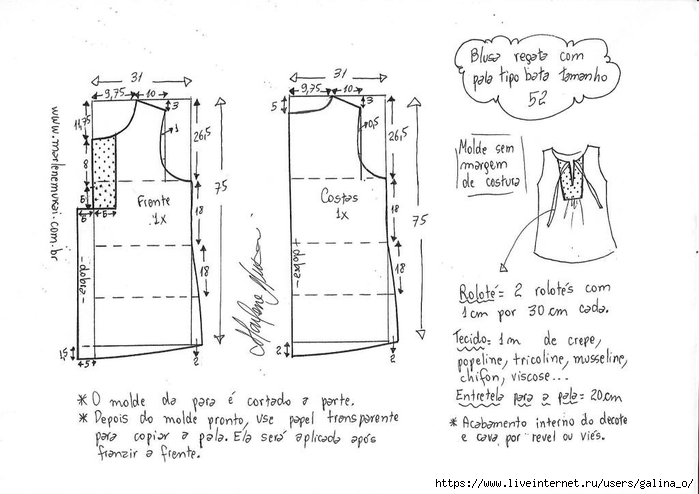 Blusa regata com
pala tipo bata tamanho
52
Molde sem
margem
de costura
31
9,75
10
3
14,75
1
26,5
8
5
5
5
Frente
1x
18
18
75
-dobra-
4,5
4,5
2
www.marlenemukai.com.br
31
9,75
10
3
5
0,5
26,5
Costas
1x
18
18
75
-dobra-
2
2
Marlene Mukai
Roloté = 2 rolotés com
1 cm por 30 cm cada.
Tecido = 1m de crepe,
popeline, tricoline, musseline,
chifon, viscose...
Entretela para a pala = 20cm
* Acabamento interno do decote
e cava por revel ou viés.
* O molde da para é cortado a parte.
* Depois do molde pronto, use papel transparente
para copiar a pala. Ela será aplicada após
franzir a frente.
https://www.liveinternet.ru/users/galina_o/